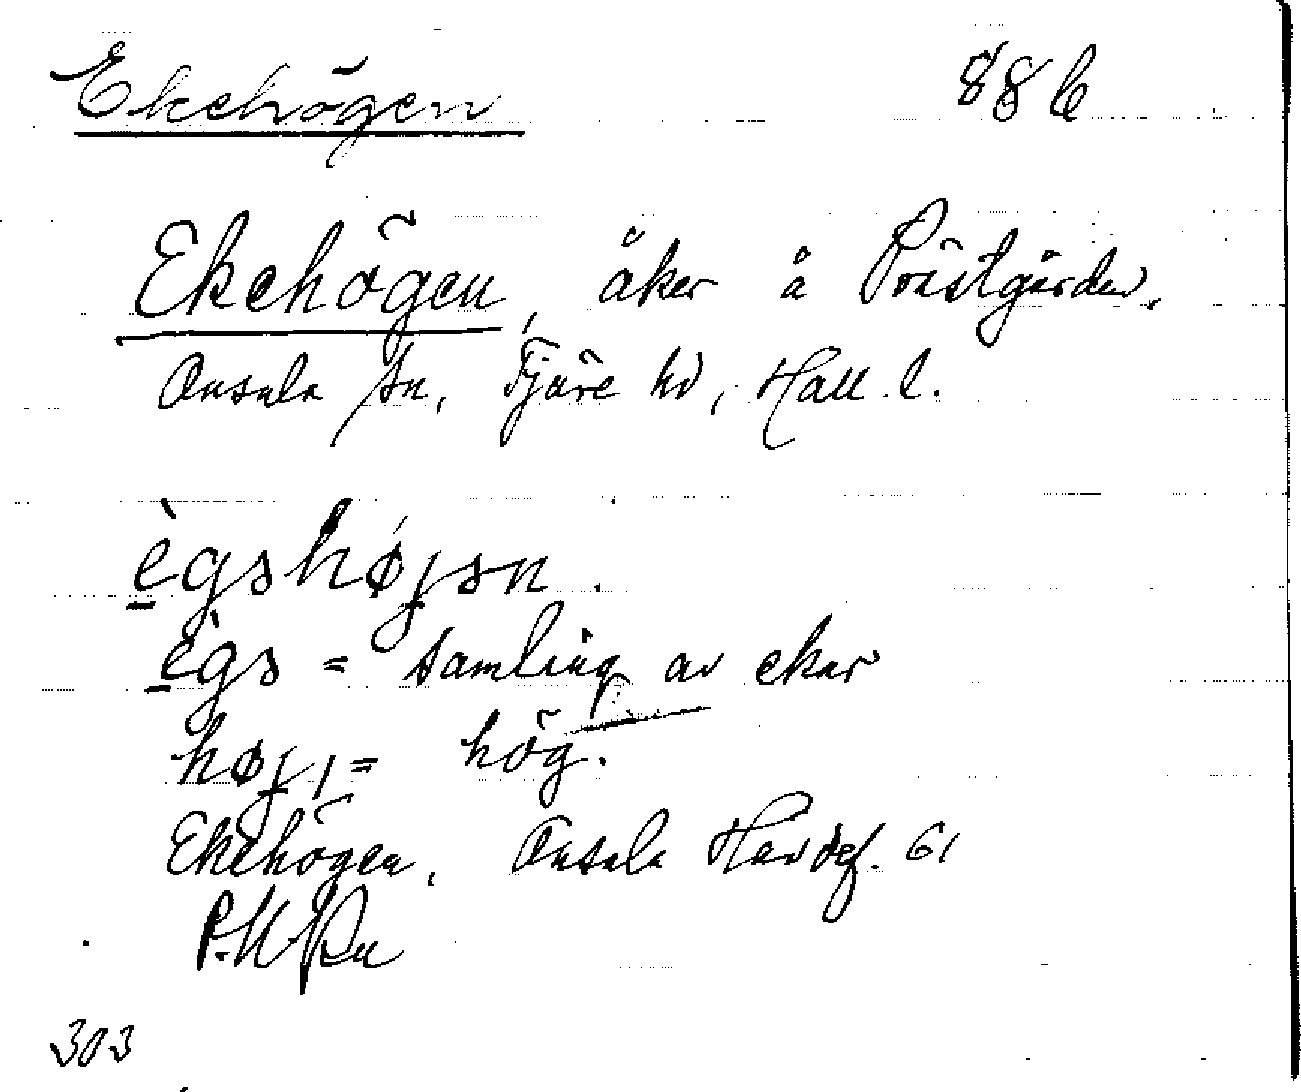 Ekehögen 886
Ekehögen, åker å Prästgården,
Onsala sn, Fjäre hd, Hall. l.
ègshøjsn.
ègs = samling av ekar
høj, = hög.
Ekehögen, Onsala Havdef. 61
303